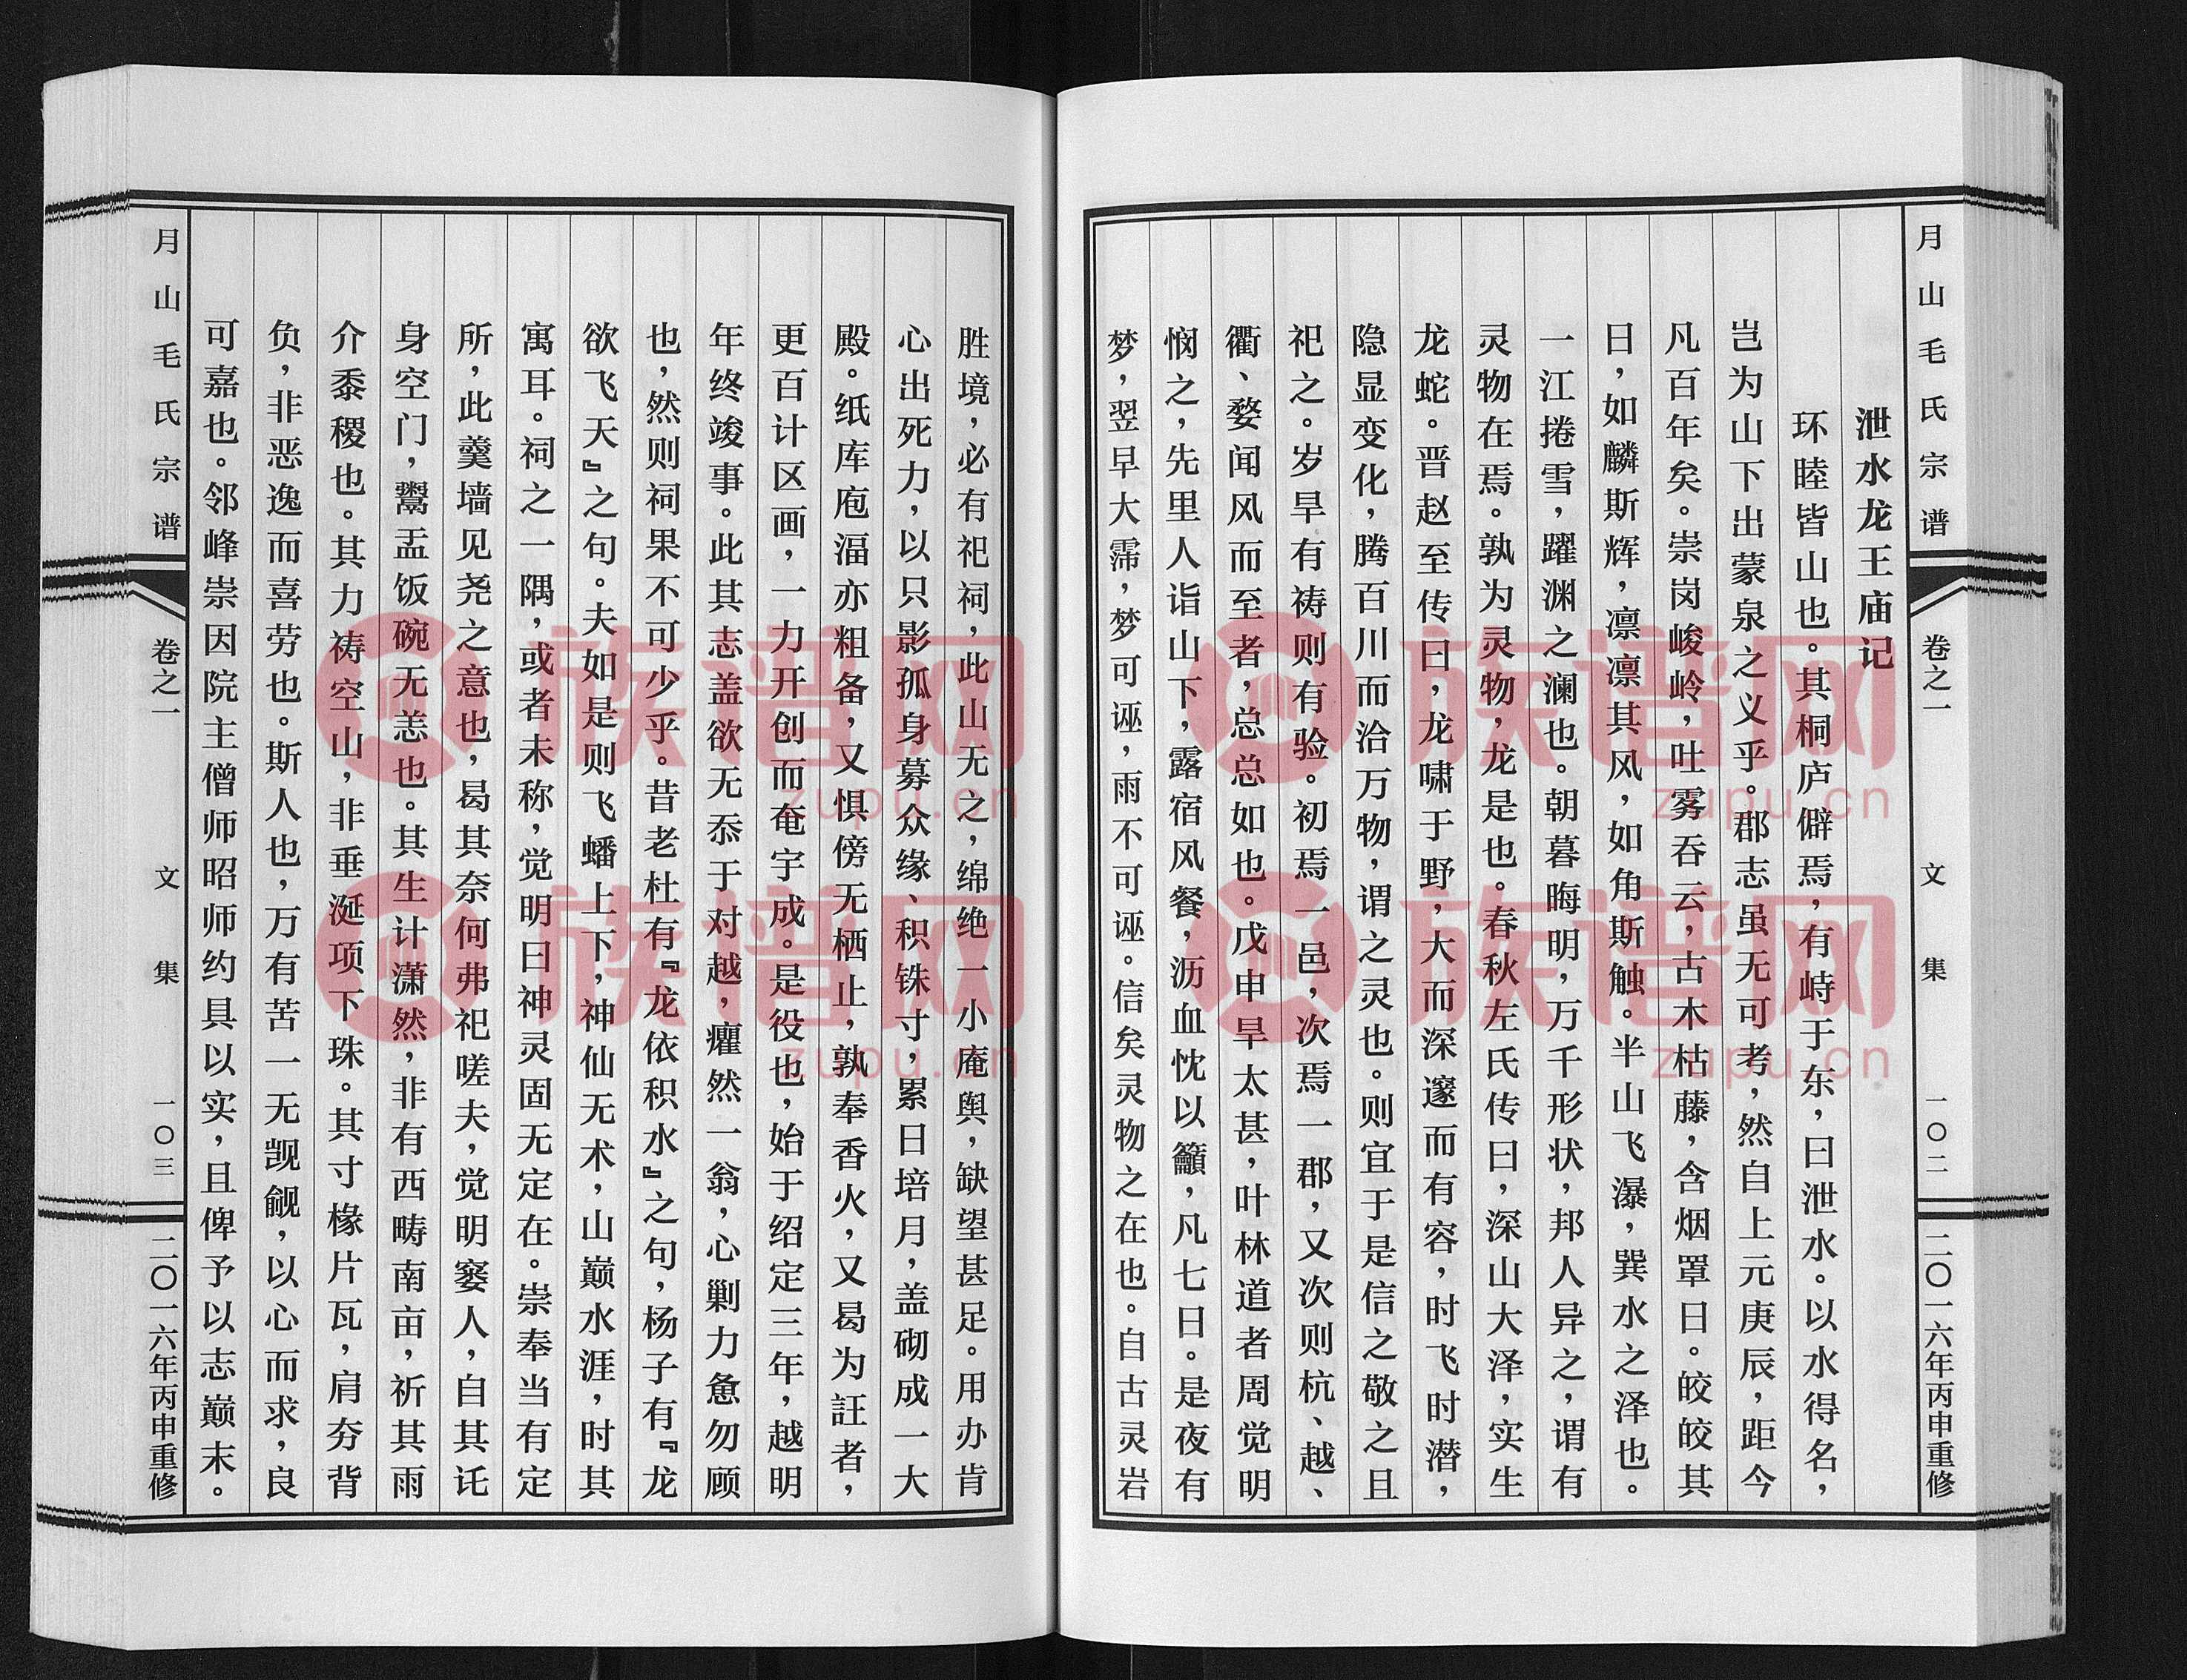 月山毛氏宗谱
卷之一
文集
一〇二
二〇一六年丙申重修
泄水龙王庙记
环睦皆山也。其桐庐僻焉，有峙于东，曰泄水。以水得名，
岂为山下出蒙泉之义乎。郡志虽无可考，然自上元庚辰，距今
凡百年矣。崇岗峻岭，吐雾吞云，古木枯藤，含烟罩日。皎皎其
日，如麟斯辉，凛凛其风，如角斯触。半山飞瀑，巽水之泽也。
一江捲雪，躍渊之澜也。朝暮晦明，万千形状，邦人异之，谓有
灵物在焉。孰为灵物，龙是也。春秋左氏传曰，深山大泽，实生
龙蛇。晋赵至传曰，龙啸于野，大而深邃而有容，时飞时潜，
隐显变化，腾百川而洽万物，谓之灵也。则宜于是信之敬之且
祀之。岁旱有祷则有验。初焉一邑，次焉一郡，又次则杭、越、
衢、婺闻风而至者，总总如也。戊申旱太甚，叶林道者周觉明
悯之，先里人诣山下，露宿风餐，沥血忱以籲，凡七日。是夜有
梦，翌早大霈，梦可诬，雨不可诬。信矣灵物之在也。自古灵岩
胜境，必有祀祠，此山无之，绵绝一小庵舆，缺望甚足。用办肯
心出死力，以只影孤身募众缘、积铢寸，累日培月，盖砌成一大
殿。纸库庖湢亦粗备，又惧傍无栖止，孰奉香火，又曷为迋者，
更百计区画，一力开创而奄宇成。是役也，始于绍定三年，越明
年终竣事。此其志盖欲无忝于对越，癯然一翁，心剿力惫勿顾
也，然则祠果不可少乎。昔老杜有『龙依积水』之句，杨子有『龙
欲飞天』之句。夫如是则飞蟠上下，神仙无术，山巅水涯，时其
寓耳。祠之一隅，或者未称，觉明曰神灵固无定在。崇奉当有定
所，此羹墙见尧之意也，曷其奈何弗祀嗟夫，觉明窭人，自其讬
身空门，鬻盂饭碗无恙也。其生计潇然，非有西畴南亩，祈其雨
介黍稷也。其力祷空山，非垂涎项下珠。其寸椽片瓦，肩夯背
负，非恶逸而喜劳也。斯人也，万有苦一无觊觎，以心而求，良
可嘉也。邻峰崇因院主僧师昭师约具以实，且俾予以志巅末。
月山毛氏宗谱
卷之一
文集
一〇三
二〇一六年丙申重修
族谱网
zupu.cn
族谱网
zupu.cn
族谱网
zupu.cn
族谱网
zupu.cn